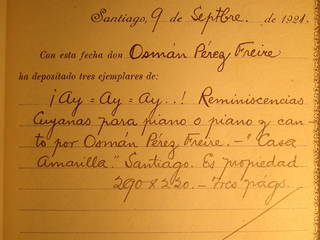 Santiago, 9 de Septbre. de 1921.
Con esta fecha don Osmán Pérez Freire
ha depositado tres ejemplares de:
¡Ay = Ay = Ay..! Reminiscencias
Cuyanas para piano o piano y can-
to por Osmán Pérez Freire. — "Casa
Amarilla" Santiago. Es propiedad.
290 x 220. — Tres págs.